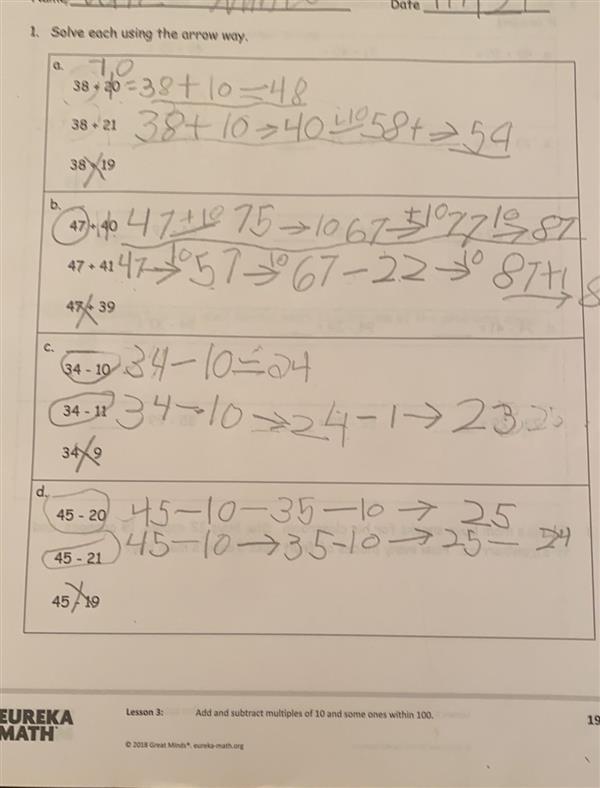 Date
1. Solve each using the arrow way.
a. 10
38 + 20 = 38 + 10 = 48
38 + 21 38 + 10 → 40 +10 58 + → 59
38 + 19
b.
47 + 40 47 +10 → 75 → 10 67 +10 → 77 10 → 87
47 + 41 47 → 10 57 → 10 67 - 22 → 10 87 + 1 → 8
47 + 39
c.
34 - 10 34 - 10 = 24
34 - 11 34 - 10 → 24 - 1 → 23
34 - 9
d.
45 - 20 45 - 10 - 35 - 10 → 25
45 - 21 45 - 10 → 35 - 10 → 25 - 24
45 - 19
EUREKA
MATH
Lesson 3: Add and subtract multiples of 10 and some ones within 100.
19
© 2018 Great Minds®. eureka-math.org